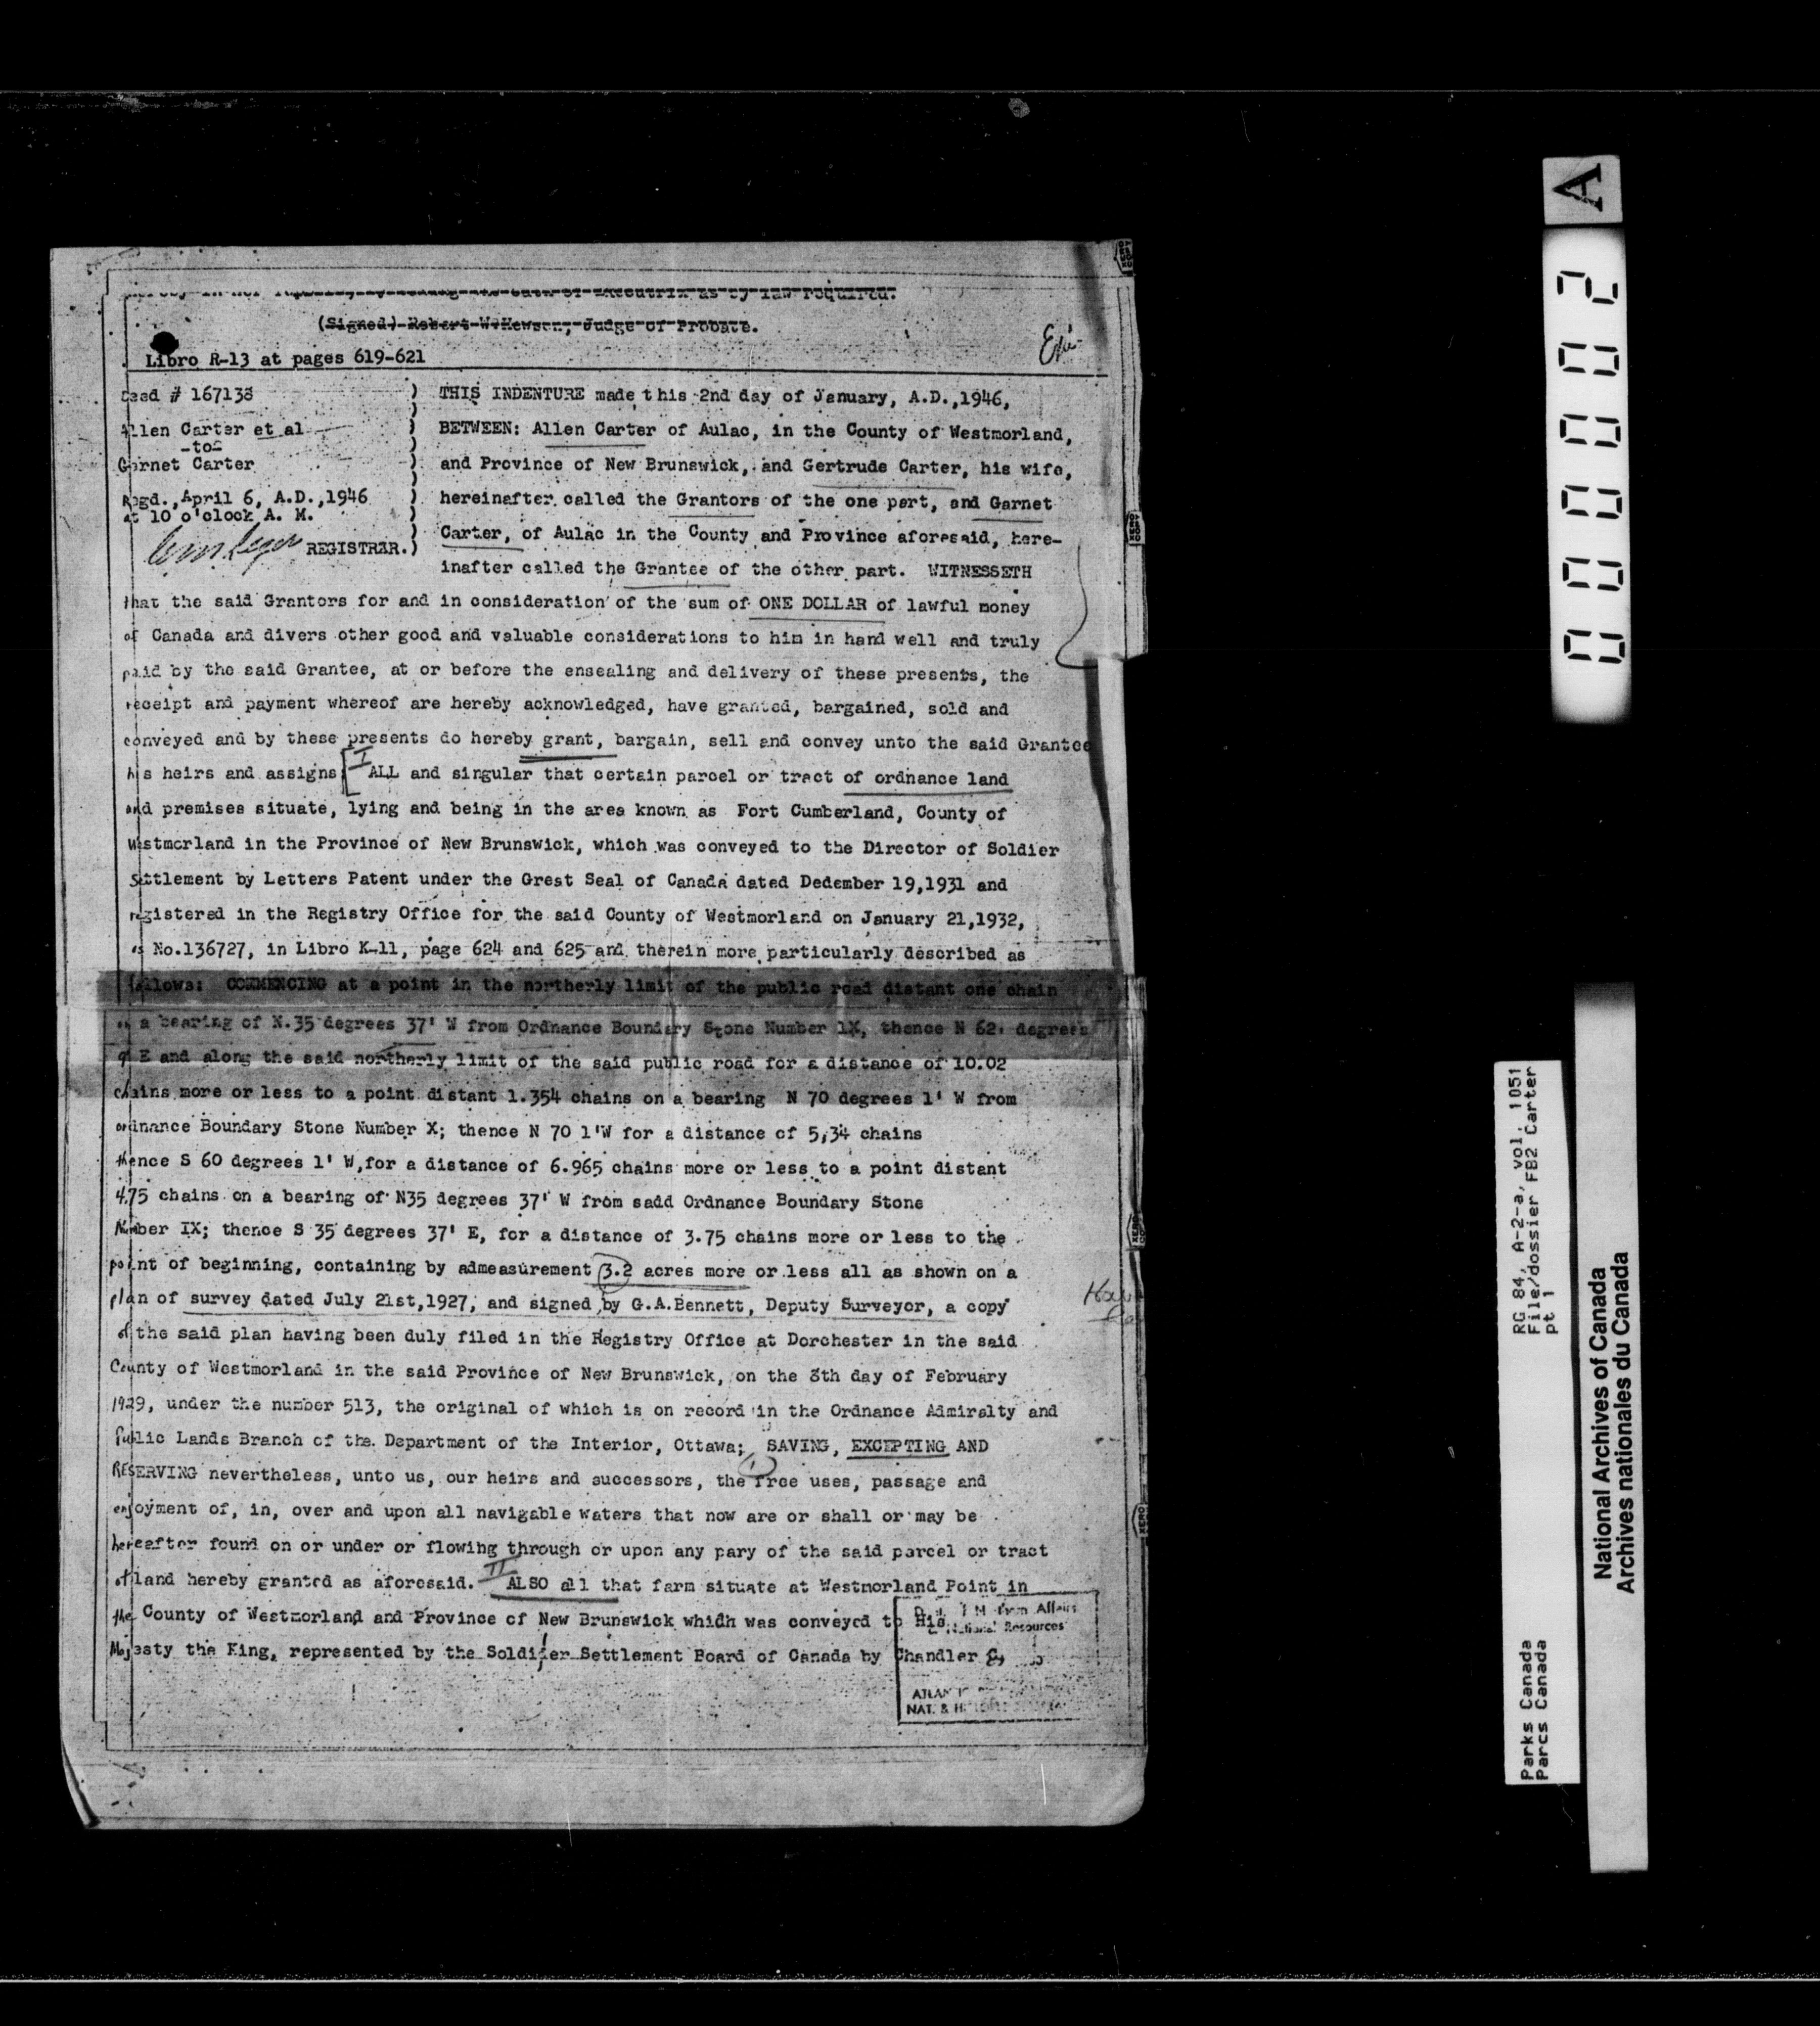 as by law required.
(Signed) Robert W. Hewson, Judge of Probate.
Libro R-13 at pages 619-621
Deed # 167138
Allen Carter et al
-to-
Garnet Carter
Regd., April 6, A.D.,1946
at 10 o'clock A. M.
REGISTRAR.
THIS INDENTURE made this 2nd day of January, A.D.,1946,
BETWEEN: Allen Carter of Aulac, in the County of Westmorland,
and Province of New Brunswick, and Gertrude Carter, his wife,
hereinafter called the Grantors of the one part, and Garnet
Carter, of Aulac in the County and Province aforesaid, here-
inafter called the Grantee of the other part. WITNESSETH
that the said Grantors for and in consideration of the sum of ONE DOLLAR of lawful money
of Canada and divers other good and valuable considerations to him in hand well and truly
paid by the said Grantee, at or before the ensealing and delivery of these presents, the
receipt and payment whereof are hereby acknowledged, have granted, bargained, sold and
conveyed and by these presents do hereby grant, bargain, sell and convey unto the said Grantee
his heirs and assigns: I ALL and singular that certain parcel or tract of ordnance land
and premises situate, lying and being in the area known as Fort Cumberland, County of
Westmorland in the Province of New Brunswick, which was conveyed to the Director of Soldier
Settlement by Letters Patent under the Great Seal of Canada dated Dedember 19,1931 and
registered in the Registry Office for the said County of Westmorland on January 21,1932,
as No.136727, in Libro K-11, page 624 and 625 and therein more particularly described as
follows: COMMENCING at a point in the northerly limit of the public road distant one chain
on a bearing of N.35 degrees 37' W from Ordnance Boundary Stone Number 1X, thence N 62. degrees
9' E and along the said northerly limit of the said public road for a distance of 10.02
chains more or less to a point distant 1.354 chains on a bearing N 70 degrees 1' W from
ordnance Boundary Stone Number X; thence N 70 1'W for a distance of 5,34 chains
thence S 60 degrees 1' W,for a distance of 6.965 chains more or less to a point distant
4.75 chains on a bearing of N35 degrees 37' W from sadd Ordnance Boundary Stone
Number IX; thence S 35 degrees 37' E, for a distance of 3.75 chains more or less to the
point of beginning, containing by admeasurement 3.2 acres more or less all as shown on a
plan of survey dated July 21st,1927, and signed by G.A.Bennett, Deputy Surveyor, a copy
of the said plan having been duly filed in the Registry Office at Dorchester in the said
County of Westmorland in the said Province of New Brunswick, on the 8th day of February
1929, under the number 513, the original of which is on record in the Ordnance Admiralty and
Public Lands Branch of the Department of the Interior, Ottawa; SAVING, EXCEPTING AND
RESERVING nevertheless, unto us, our heirs and successors, the free uses, passage and
enjoyment of, in, over and upon all navigable waters that now are or shall or may be
hereafter found on or under or flowing through or upon any pary of the said parcel or tract
of land hereby granted as aforesaid. II ALSO all that farm situate at Westmorland Point in
the County of Westmorland and Province of New Brunswick which was conveyed to His
Majesty the King, represented by the Soldier Settlement Board of Canada by Chandler
Affairs
National Resources
NAT. & H
A
00002
RG 84, A-2-a, vol. 1051
File/dossier FB2 Carter
pt 1
Parks Canada
Parcs Canada
National Archives of Canada
Archives nationales du Canada